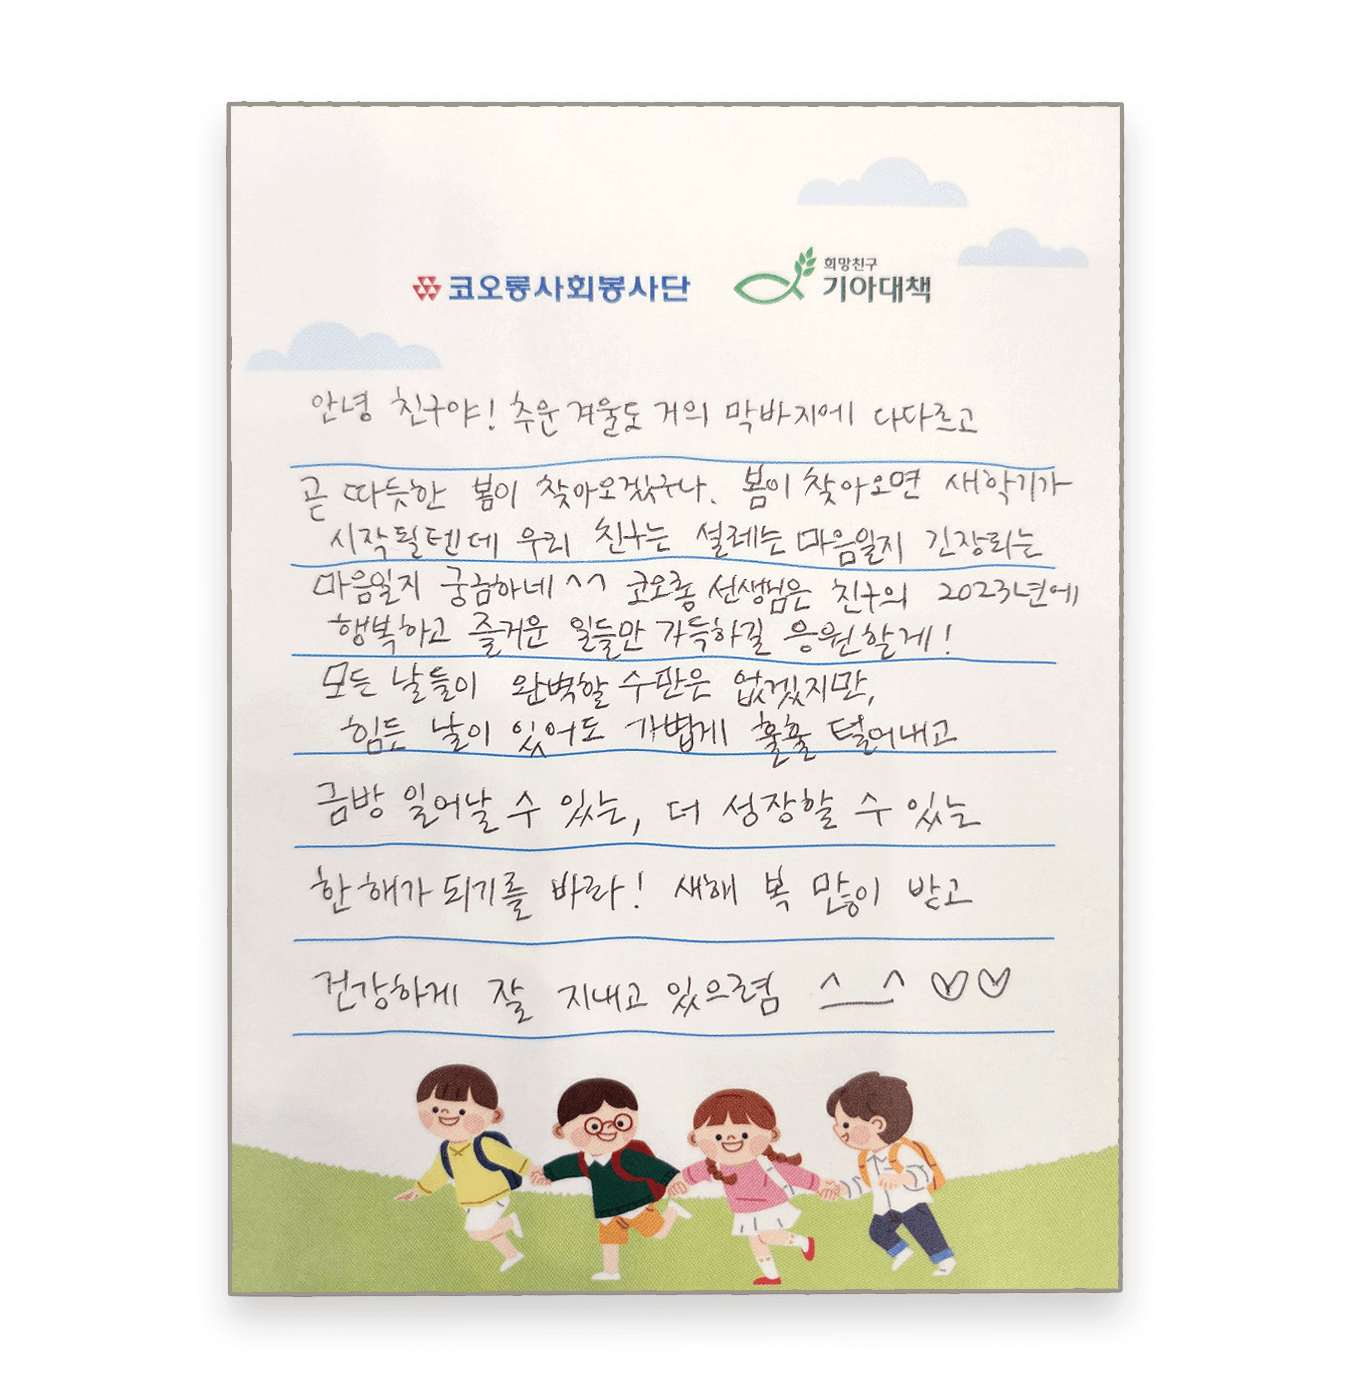 코오롱사회봉사단
희망친구
기아대책
안녕 친구야! 추운 겨울도 거의 막바지에 다다르고
곧 따듯한 봄이 찾아오겠구나. 봄이 찾아오면 새학기가
시작될텐데 우리 친구는 설레는 마음일지 긴장되는
마음일지 궁금하네 ^^ 코오롱 선생님은 친구의 2023년에
행복하고 즐거운 일들만 가득하길 응원할게!
모든 날들이 완벽할 수만은 없겠지만,
힘든 날이 있어도 가볍게 훌훌 털어내고
금방 일어날 수 있는, 더 성장할 수 있는
한 해가 되기를 바라! 새해 복 많이 받고
건강하게 잘 지내고 있으렴 ^__^ ♡♡